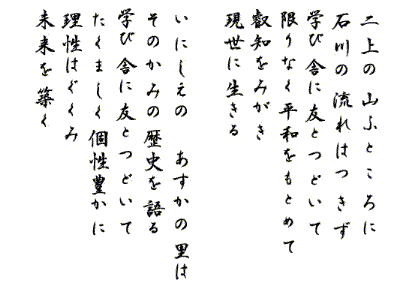 二上の 山ふところに
石川の 流れはつきず
学び舎に友とつどいて
限りなく平和をもとめて
叡知をみがき
現世に生きる
いにしえの あすかの里は
そのかみの歴史を語る
学び舎に友とつどいて
たくましく個性豊かに
理性はぐくみ
未来を築く